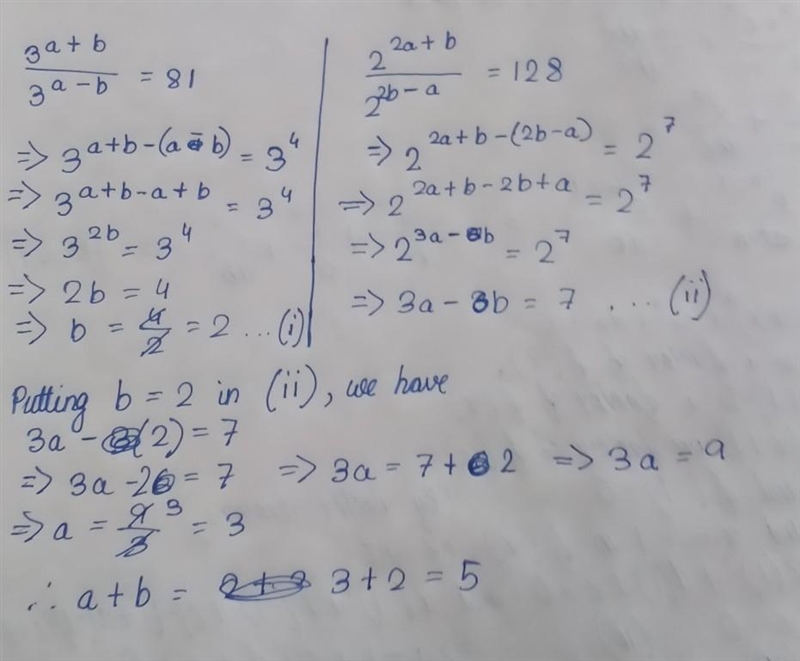 3^(a+b) / 3^(a-b) = 81
=> 3^(a+b-(a-b)) = 3^4
=> 3^(a+b-a+b) = 3^4
=> 3^(2b) = 3^4
=> 2b = 4
=> b = 4/2 = 2 ... (i)
2^(2a+b) / 2^(2b-a) = 128
=> 2^(2a+b-(2b-a)) = 2^7
=> 2^(2a+b-2b+a) = 2^7
=> 2^(3a-b) = 2^7
=> 3a - b = 7 ... (ii)
Putting b = 2 in (ii), we have
3a - (2) = 7
=> 3a - 2 = 7 => 3a = 7 + 2 => 3a = 9
=> a = 9/3 3 = 3
∴ a + b = 3 + 2 = 5